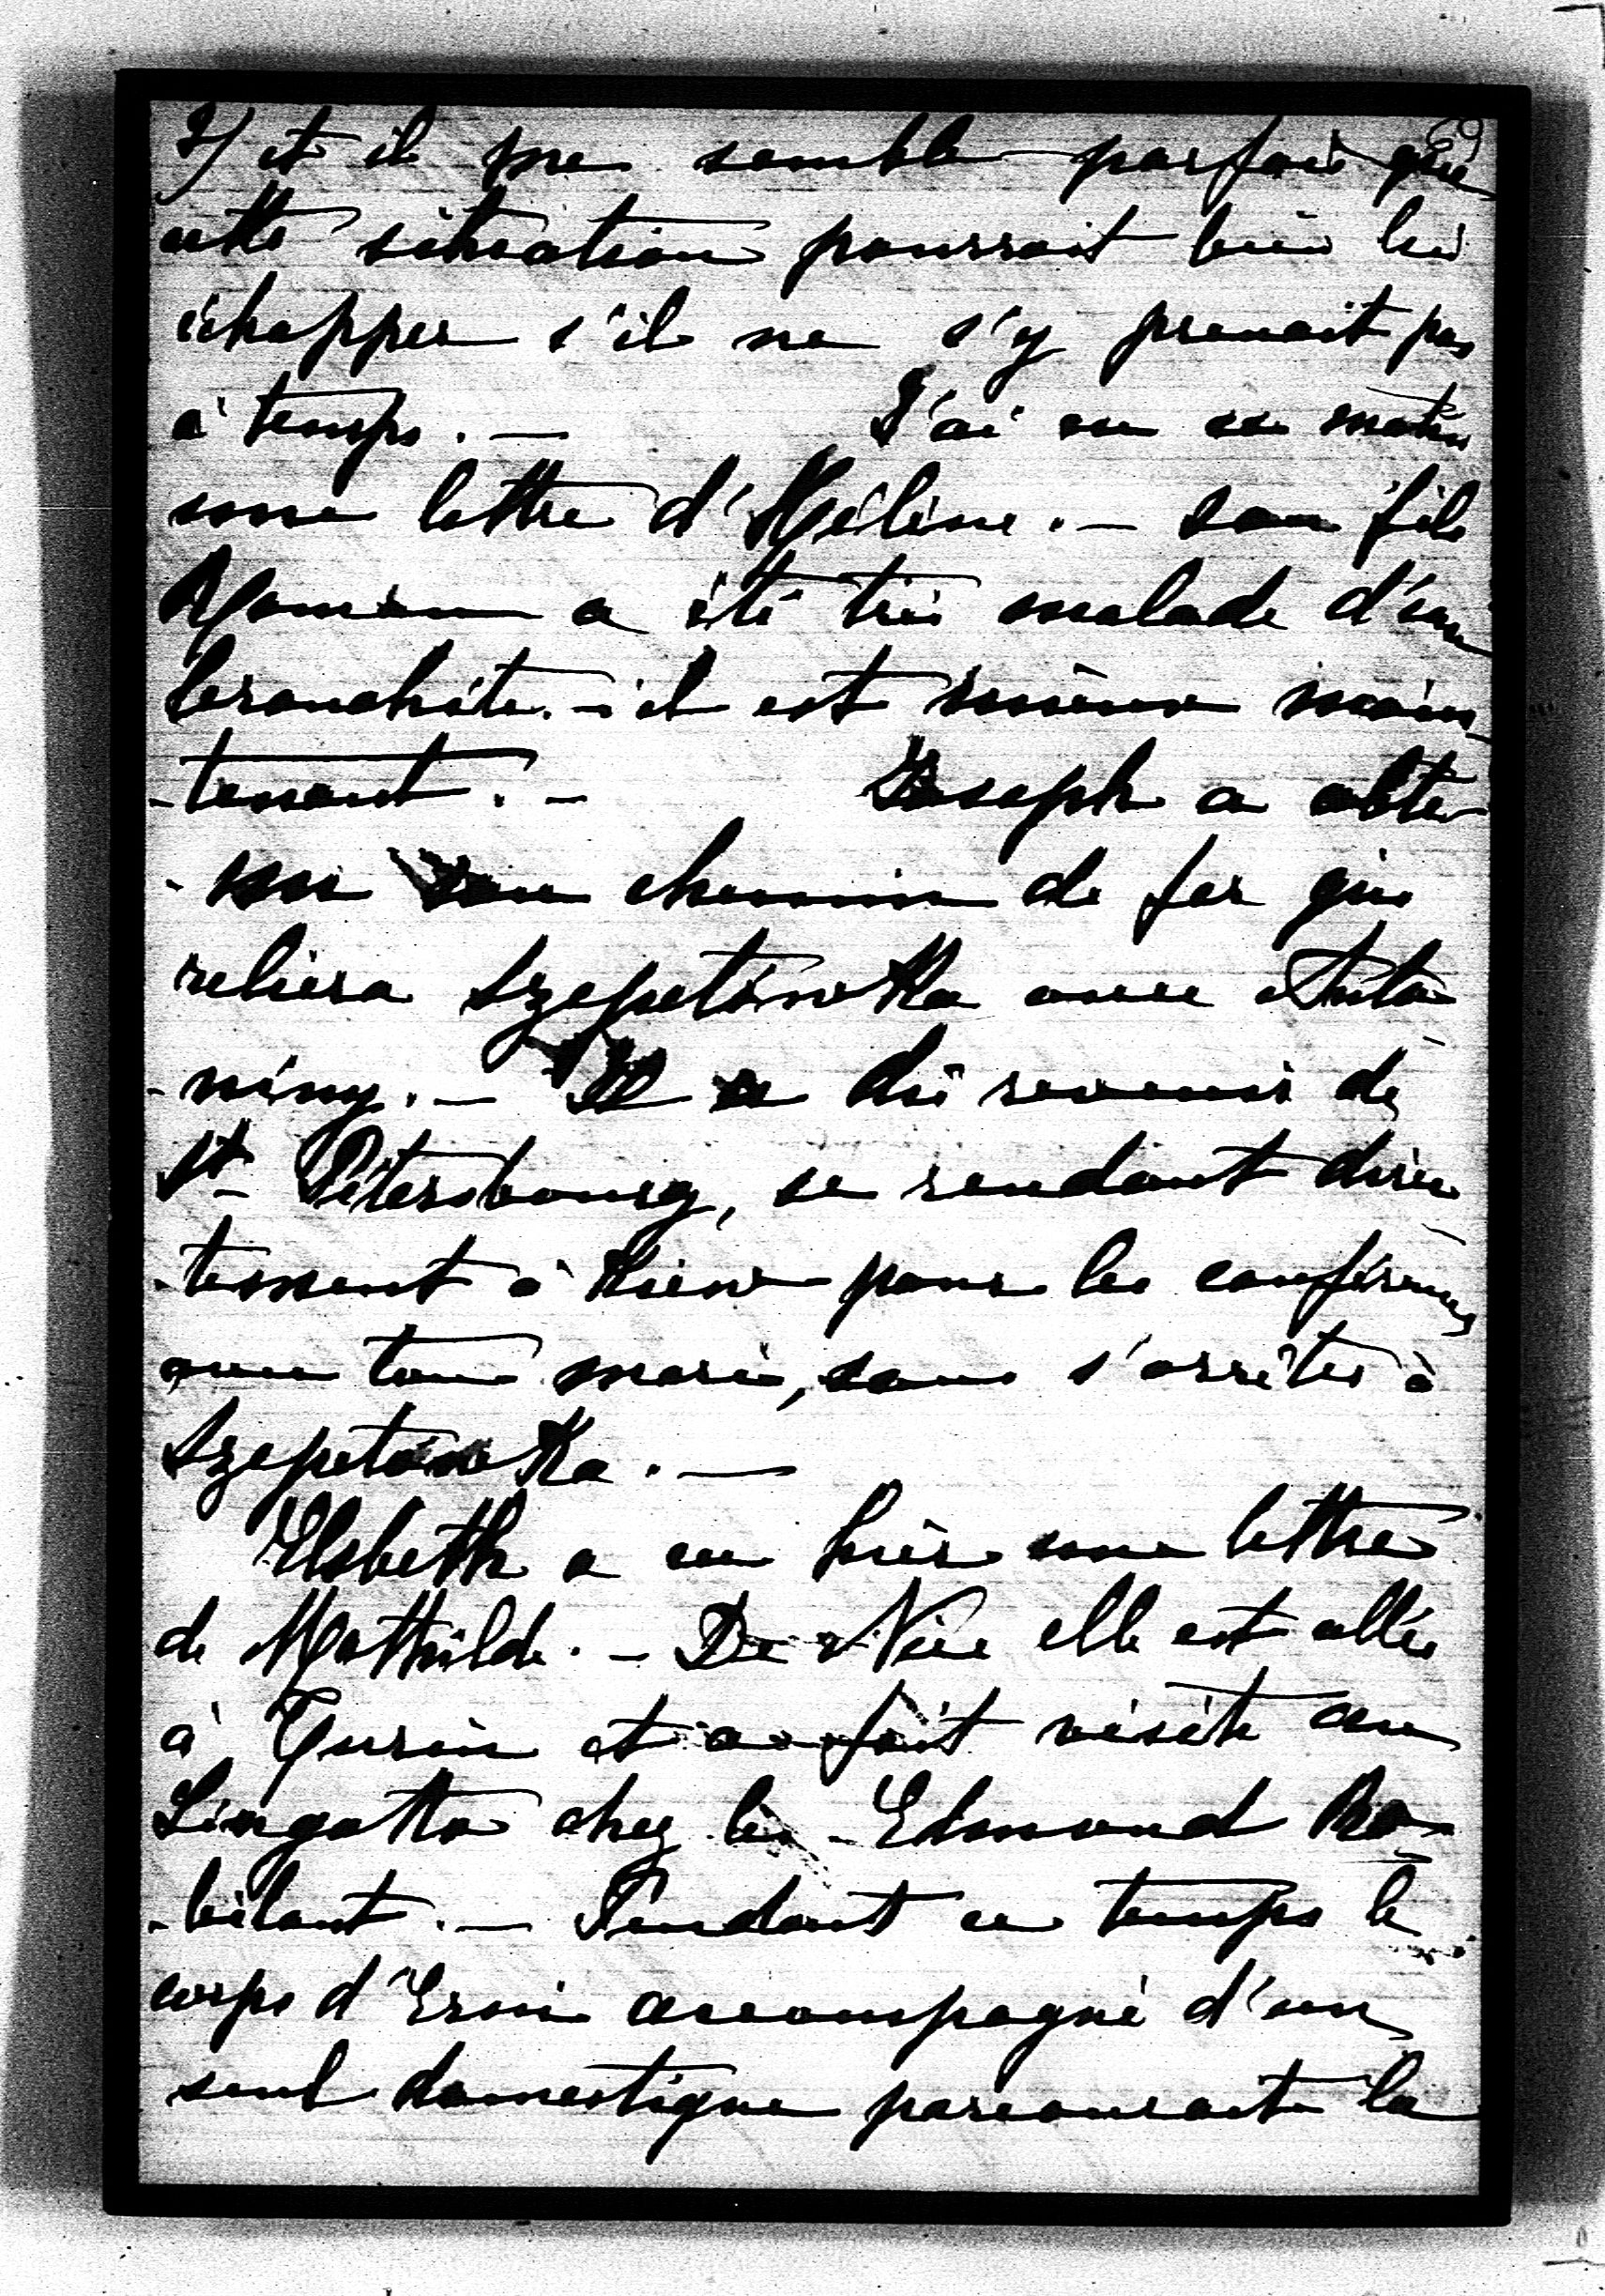 2/ et il me semble parfois que
cette situation pourrait bien lui
échapper s'il ne s'y prenait pas
à temps. — J'ai eu ce matin
une lettre d'Hélène. — son fils
Roman a été très malade d'une
bronchite. – il est mieux main
-tenant. – Joseph a obte
-nu son chemin de fer qui
reliera Szepetówka avec Anto
-niny. — Il a dû revenir de
St- Pétersbourg, se rendant direc
-tement à Kiew pour les conférences
avec ton mari, sans s'arrêter à
Szepetówka. —
Elsbeth a eu hier une lettre
de Mathilde. – De Nice elle est allée
à Turin et a fait visite au
Lingotto chez les Edmond Ro-
-bilant. — Pendant ce temps le
corps d'Erni accompagné d'un
seul domestique parcourait la